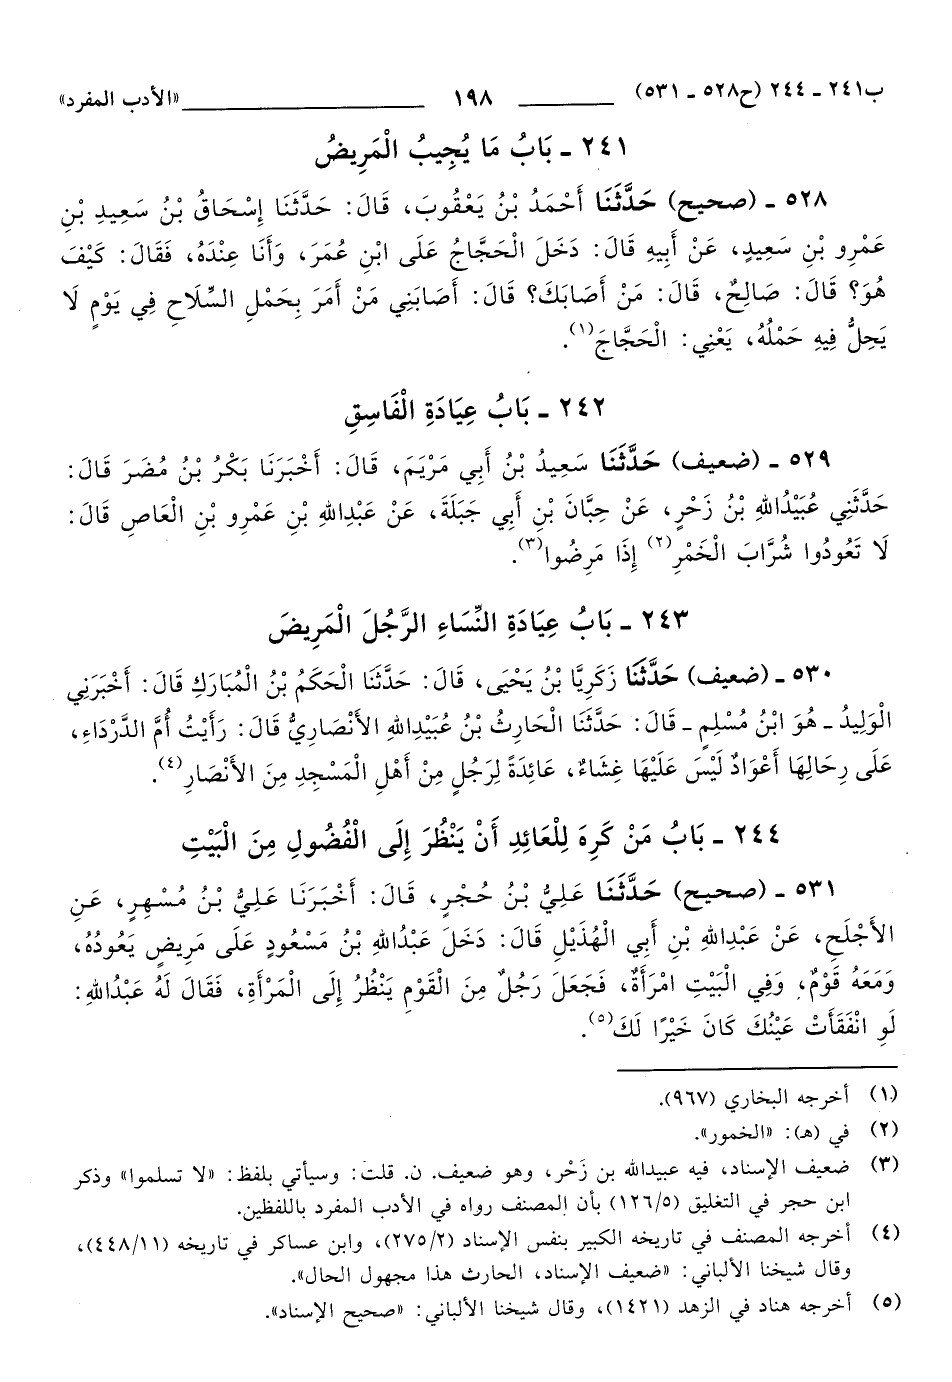 ب٢٤١ ـ ٢٤٤ (ح٥٢٨ ـ ٥٣١) ١٩٨ «الأدب المفرد»
٢٤١ ـ بَابُ مَا يُجِيبُ الْمَرِيضُ
٥٢٨ ـ (صحيح) حَدَّثَنَا أَحْمَدُ بْنُ يَعْقُوبَ، قَالَ: حَدَّثَنَا إِسْحَاقُ بْنُ سَعِيدِ بْنِ
عَمْرِو بْنِ سَعِيدٍ، عَنْ أَبِيهِ قَالَ: دَخَلَ الْحَجَّاجُ عَلَى ابْنِ عُمَرَ، وَأَنَا عِنْدَهُ، فَقَالَ: كَيْفَ
هُوَ؟ قَالَ: صَالِحٌ، قَالَ: مَنْ أَصَابَكَ؟ قَالَ: أَصَابَنِي مَنْ أَمَرَ بِحَمْلِ السِّلَاحِ فِي يَوْمٍ لَا
يَحِلُّ فِيهِ حَمْلُهُ، يَعْنِي: الْحَجَّاجَ(١).
٢٤٢ ـ بَابُ عِيَادَةِ الْفَاسِقِ
٥٢٩ ـ (ضعيف) حَدَّثَنَا سَعِيدُ بْنُ أَبِي مَرْيَمَ، قَالَ: أَخْبَرَنَا بَكْرُ بْنُ مُضَرَ قَالَ:
حَدَّثَنِي عُبَيْدُاللهِ بْنُ زَحْرٍ، عَنْ حِبَّانَ بْنِ أَبِي جَبَلَةَ، عَنْ عَبْدِاللهِ بْنِ عَمْرِو بْنِ الْعَاصِ قَالَ:
لَا تَعُودُوا شُرَّابَ الْخَمْرِ(٢) إِذَا مَرِضُوا(٣).
٢٤٣ ـ بَابُ عِيَادَةِ النِّسَاءِ الرَّجُلَ الْمَرِيضَ
٥٣٠ ـ (ضعيف) حَدَّثَنَا زَكَرِيَّا بْنُ يَحْيَى، قَالَ: حَدَّثَنَا الْحَكَمُ بْنُ الْمُبَارَكِ قَالَ: أَخْبَرَنِي
الْوَلِيدُ ـ هُوَ ابْنُ مُسْلِمٍ ـ قَالَ: حَدَّثَنَا الْحَارِثُ بْنُ عُبَيْدِاللهِ الأَنْصَارِيُّ قَالَ: رَأَيْتُ أُمَّ الدَّرْدَاءِ،
عَلَى رِحَالِهَا أَعْوَادٌ لَيْسَ عَلَيْهَا غِشَاءٌ، عَائِدَةً لِرَجُلٍ مِنْ أَهْلِ الْمَسْجِدِ مِنَ الأَنْصَارِ(٤).
٢٤٤ ـ بَابُ مَنْ كَرِهَ لِلْعَائِدِ أَنْ يَنْظُرَ إِلَى الْفُضُولِ مِنَ الْبَيْتِ
٥٣١ ـ (صحيح) حَدَّثَنَا عَلِيُّ بْنُ حُجْرٍ، قَالَ: أَخْبَرَنَا عَلِيُّ بْنُ مُسْهِرٍ، عَنِ
الأَجْلَحِ، عَنْ عَبْدِاللهِ بْنِ أَبِي الْهُذَيْلِ قَالَ: دَخَلَ عَبْدُاللهِ بْنُ مَسْعُودٍ عَلَى مَرِيضٍ يَعُودُهُ،
وَمَعَهُ قَوْمٌ، وَفِي الْبَيْتِ امْرَأَةٌ، فَجَعَلَ رَجُلٌ مِنَ الْقَوْمِ يَنْظُرُ إِلَى الْمَرْأَةِ، فَقَالَ لَهُ عَبْدُاللهِ:
لَوِ انْفَقَأَتْ عَيْنُكَ كَانَ خَيْرًا لَكَ(٥).
(١) أخرجه البخاري (٩٦٧).
(٢) في (هـ): «الخمور».
(٣) ضعيف الإسناد، فيه عبيدالله بن زَحْر، وهو ضعيف. ن. قلت: وسيأتي بلفظ: «لا تسلموا» وذكر
ابن حجر في التغليق (١٢٦/٥) بأن المصنف رواه في الأدب المفرد باللفظين.
(٤) أخرجه المصنف في تاريخه الكبير بنفس الإسناد (٢٧٥/٢)، وابن عساكر في تاريخه (٤٤٨/١١)،
وقال شيخنا الألباني: «ضعيف الإسناد، الحارث هذا مجهول الحال».
(٥) أخرجه هناد في الزهد (١٤٢١)، وقال شيخنا الألباني: «صحيح الإسناد».